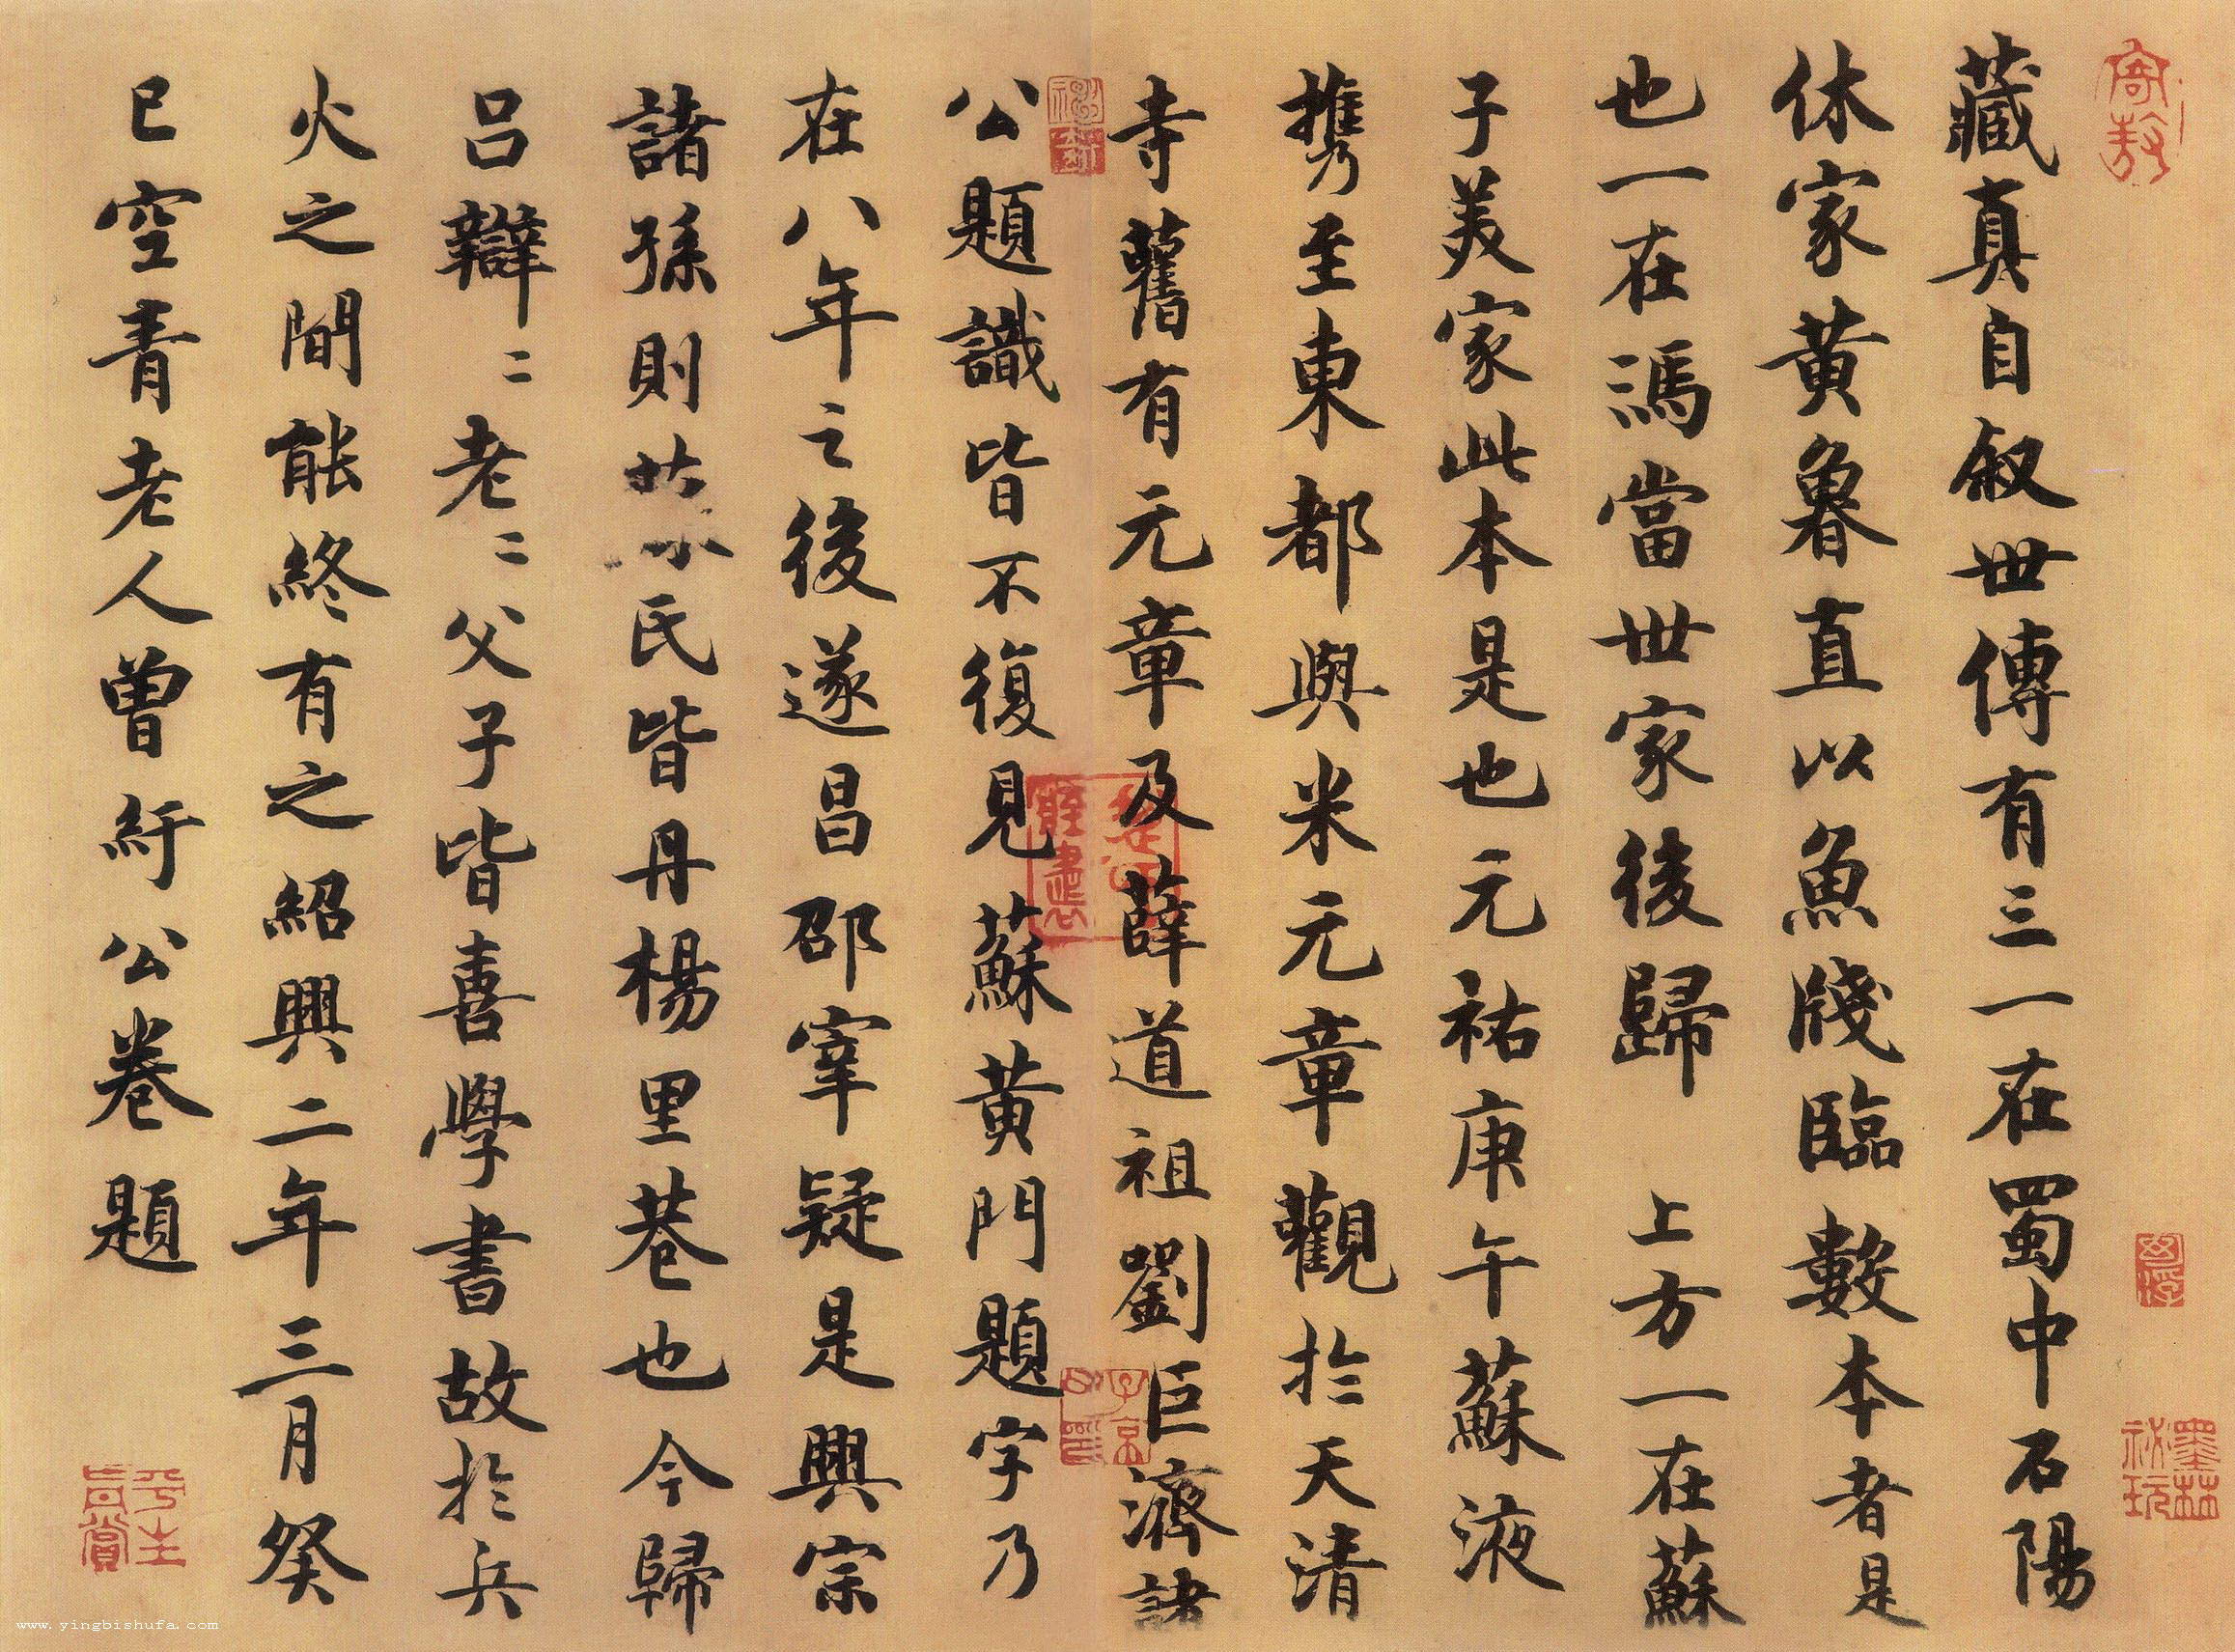 藏真自叙世傳有三一在蜀中石陽
休家黃魯直以魚牋臨數本者是
也一在馮當世家後歸 上方一在蘇
子美家此本是也元祐庚午蘇液
攜至東都與米元章觀於天清
寺舊有元章及薛道祖劉巨濟諸
公題識皆不復見蘇黃門題字乃
在八年之後遂昌邵宰疑是興宗
諸孫則氏皆丹楊里巷也今歸
呂辯二老二父子皆喜學書故於兵
火之間能終有之紹興二年三月癸
巳空青老人曾紆公卷題
墨林祕玩
子京
平生真賞
www.yingbishufa.com